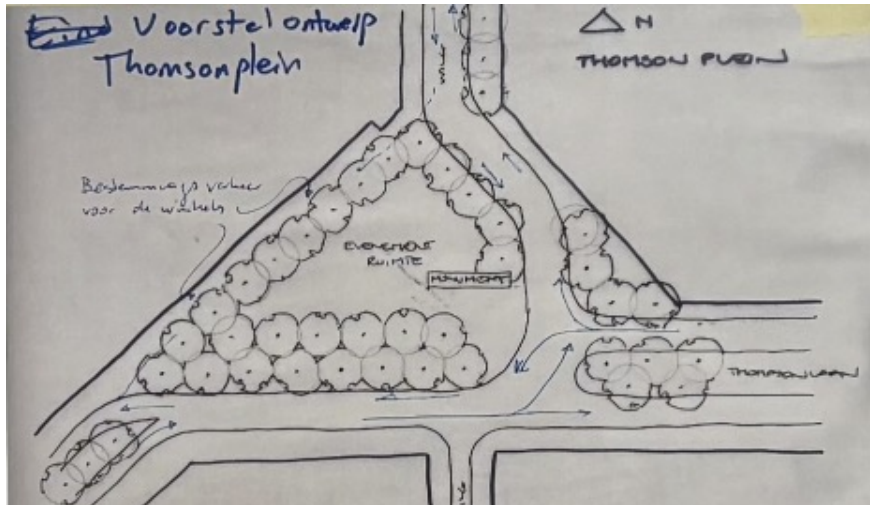 Voorstel ontwerp
Thomsonplein
N
THOMSON PLEIN
Bestemmings verkeer
voor de winkels
EVENEMENT
RUIMTE
MONUMENT
THOMSONLAAN